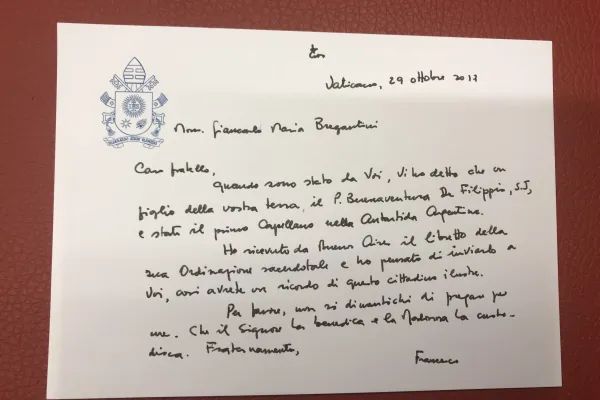 Vaticano, 29 ottobre 2017
Mons. Giancarlo Maria Bregantini
Caro fratello,
quando sono stato da Voi, Vi ho detto che un
figlio della vostra terra, il P. Buenaventura De Filippis, SJ,
è stato il primo Capellano nella Antartida Argentina.
Ho ricevuto da Buenos Aires il libretto della
sua Ordinazione sacerdotale e ho pensato di inviarlo a
Voi, così avrete un ricordo di questo cittadino illustre.
Per favore, non si dimentichi di pregare per
me. Che il Signore La benedica e la Madonna La custo-
disca. Fraternamente,
Francesco